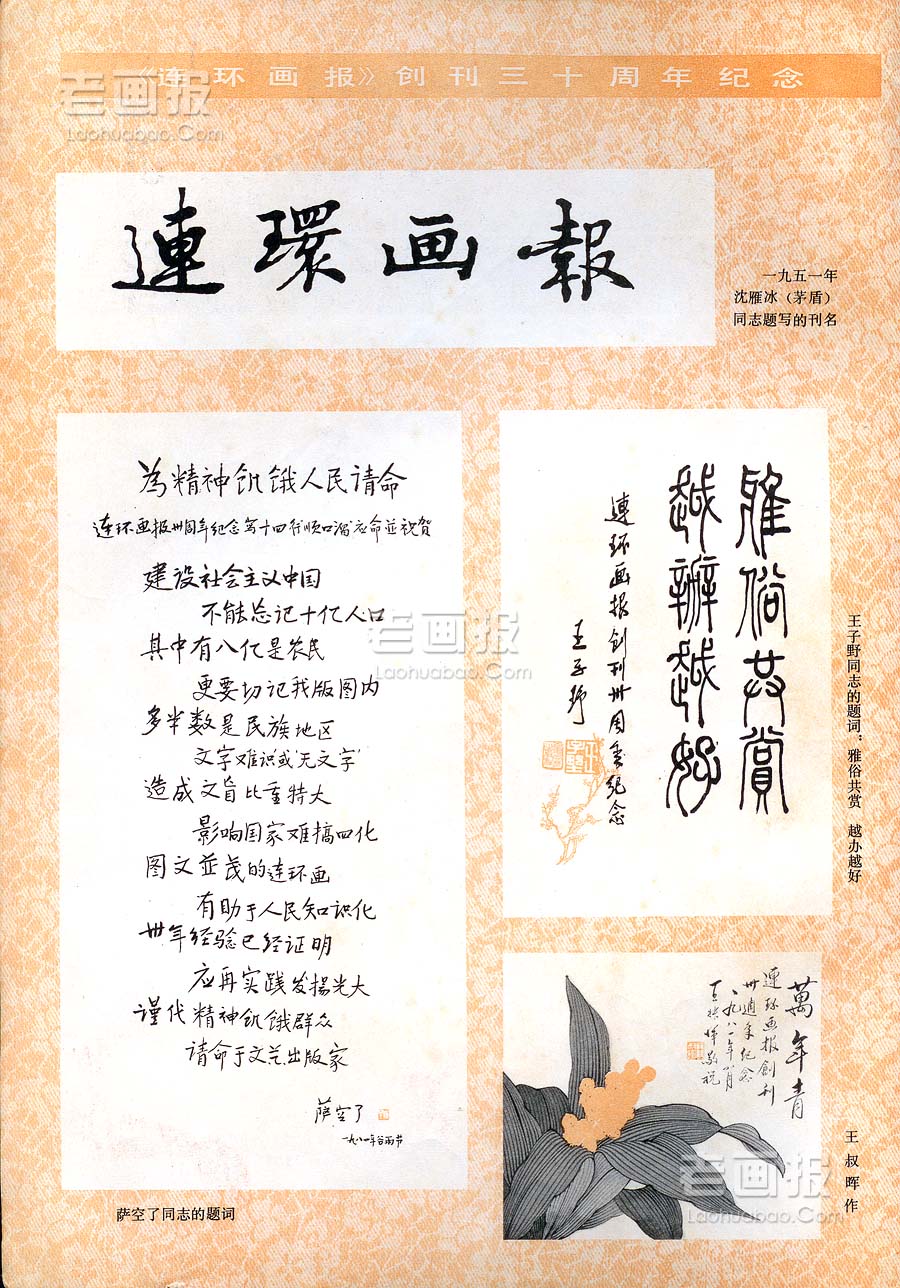 《连环画报》创刊三十周年纪念
老画报
Laohuabao.Com
連環画報
一九五一年
沈雁冰（茅盾）
同志题写的刊名
为精神饥饿人民请命
连环画报卅周年纪念写十四行顺口溜应命並祝贺
建设社会主义中国
不能忘记十亿人口
其中有八亿是农民
更要切记我版图内
多半数是民族地区
文字难识或'无文字'
造成文盲比重特大
影响国家难搞四化
图文並茂的连环画
有助于人民知识化
卅年经验已经证明
应再实践发揚光大
谨代精神饥饿群众
请命于文艺出版家
萨空了
一九八一年谷雨节
萨空了同志的题词
老画报
Laohuabao.Com
雅俗共賞
越辦越好
連环画报创刊卅周年纪念
王子野
王子野同志的题词：雅俗共赏 越办越好
萬年青
連环画报創刊
卅週年纪念
一九八一年
王叔暉敬祝
王叔晖作
老画报
Laohuabao.Com